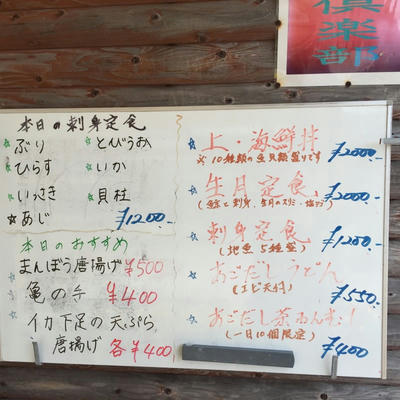 倶楽部
本日の刺身定食
ぶり
とんびうお
ひらす
いか
いっさき
貝柱
あじ
¥1200.-
本日のおすすめ
まんぼう唐揚げ ¥500
亀の手 ¥400
イカ下足の天ぷら
唐揚げ 各¥400
上・海鮮丼
¥2000.-
生月定食
¥2000.-
刺身定食
(地魚5種盛)
¥1200.-
あごだしうどん
(エビ天付)
¥550.-
あごだし茶わんむし
(一日10個限定)
¥400